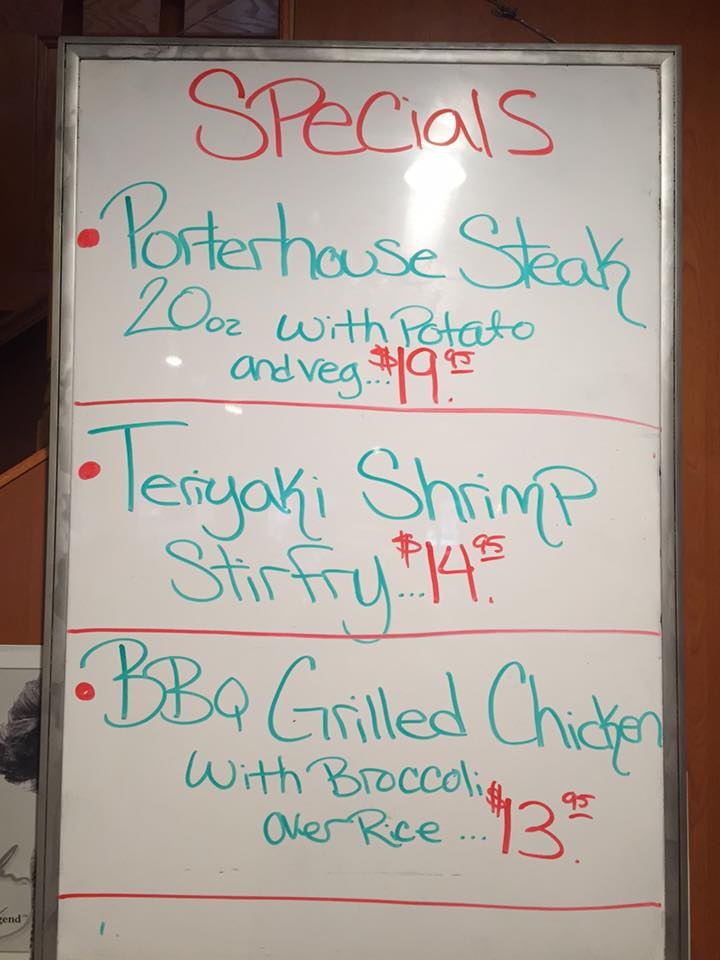 Specials
• Porterhouse Steak
20oz with Potato
and veg...$19.95
• Teriyaki Shrimp
Stirfry...$14.95
• BBQ Grilled Chicken
With Broccoli
over Rice ...$13.95
gend™